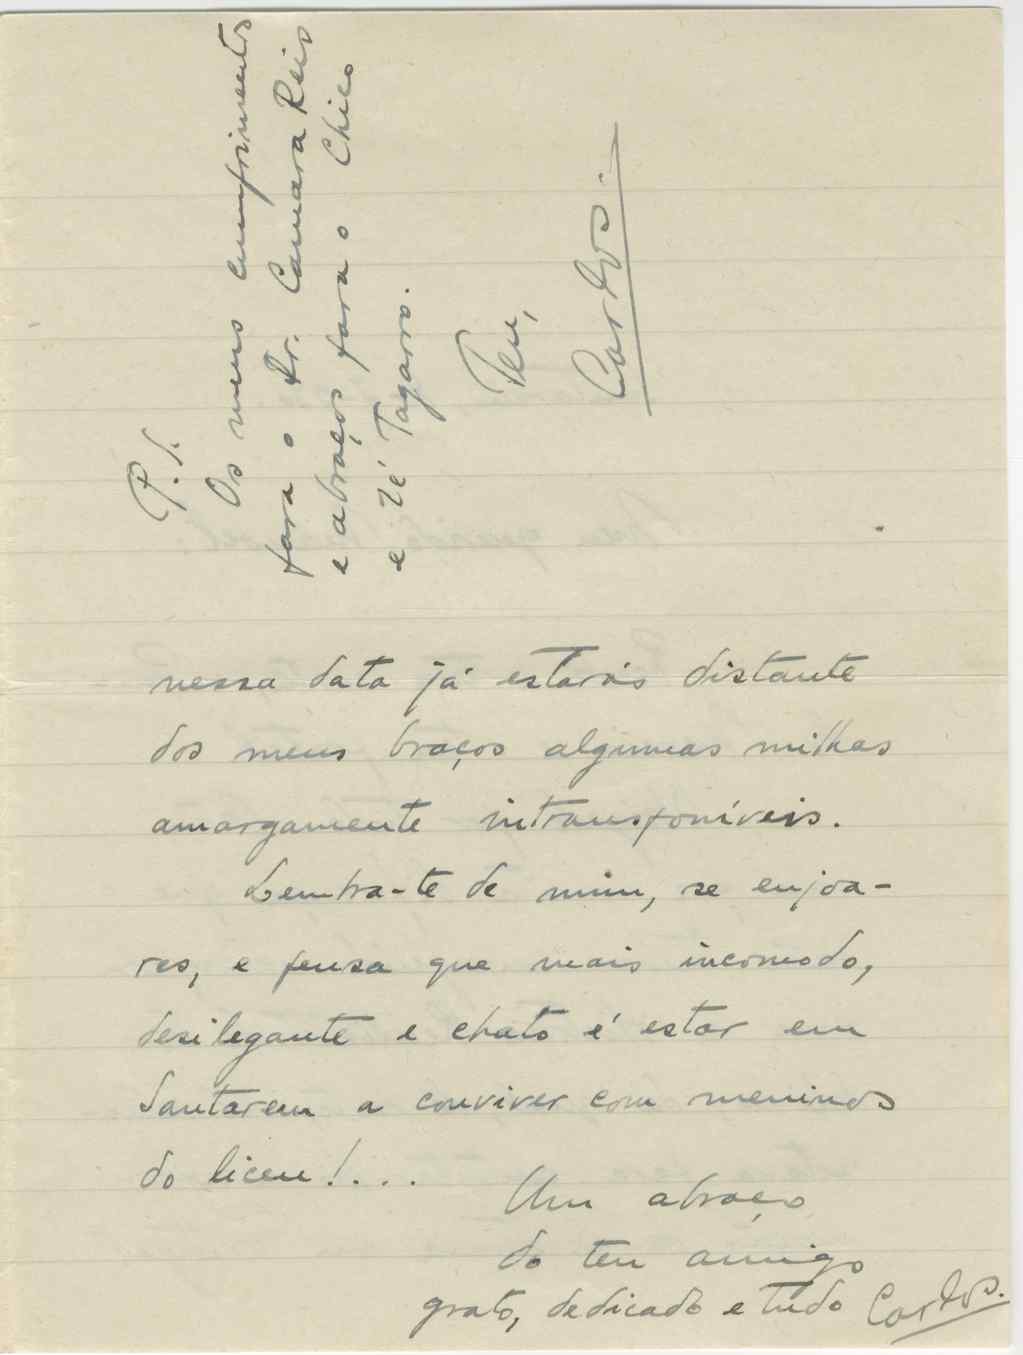 nessa data já estarás distante
dos meus braços algumas milhas
amargamente intransponíveis.
Lembra-te de mim, se enjoa-
res, e pensa que mais incomodo,
desilegante e chato é estar em
Santarem a conviver com meninos
do liceu!...
Um abraço
do teu amigo
grato, dedicado e tudo Carlos.
P.S.
Os meus cumprimentos
para o Dr. Camara Reis
e abraços para o Chico
e Zé Tagarro.
Teu,
Carlos.